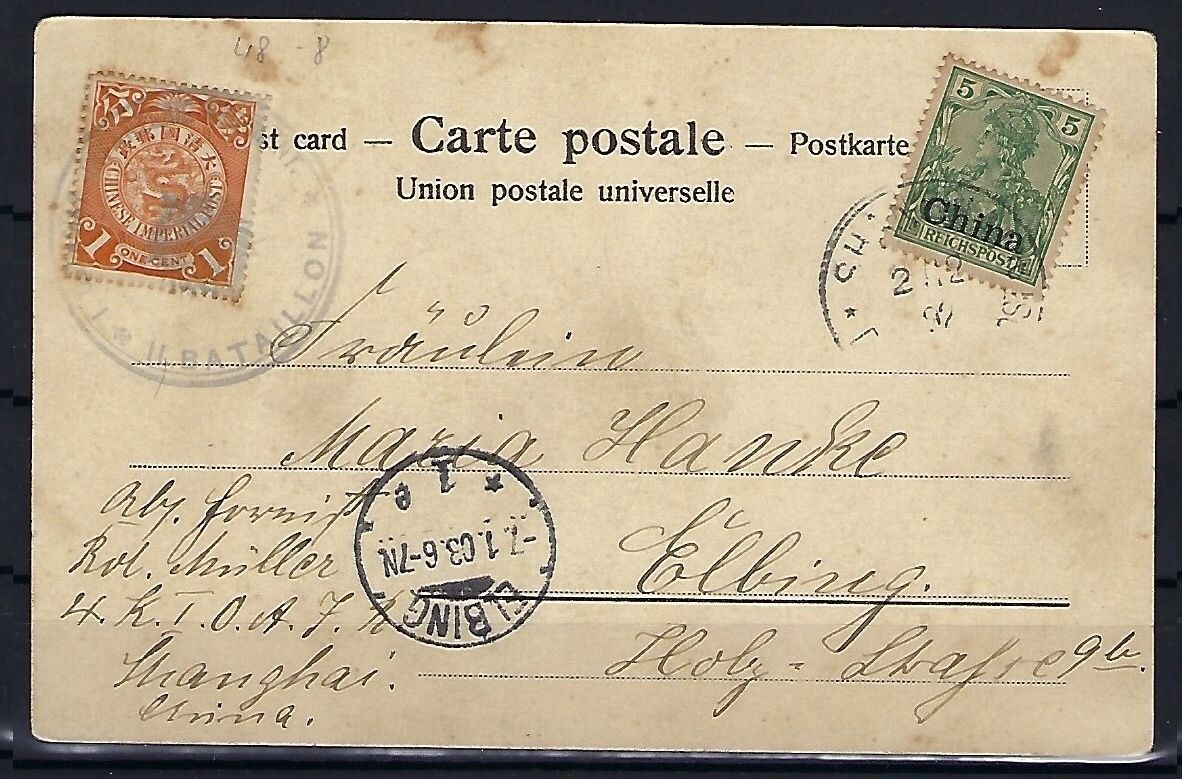 48 - 8
st card — Carte postale — Postkarte
Union postale universelle
大清國郵政
CHINESE IMPERIAL POST
1 ONE CENT 1
5 5
China
REICHSPOST
II BATAILLON
2 12
Fräulein
Maria Hanke
Elbing.
Holz-Strafse 9b.
Abs.
Müller
4. K. I. O. A. J. R
Shanghai.
China.
ELBING
-7.1.03.6-7N.
* 1 e